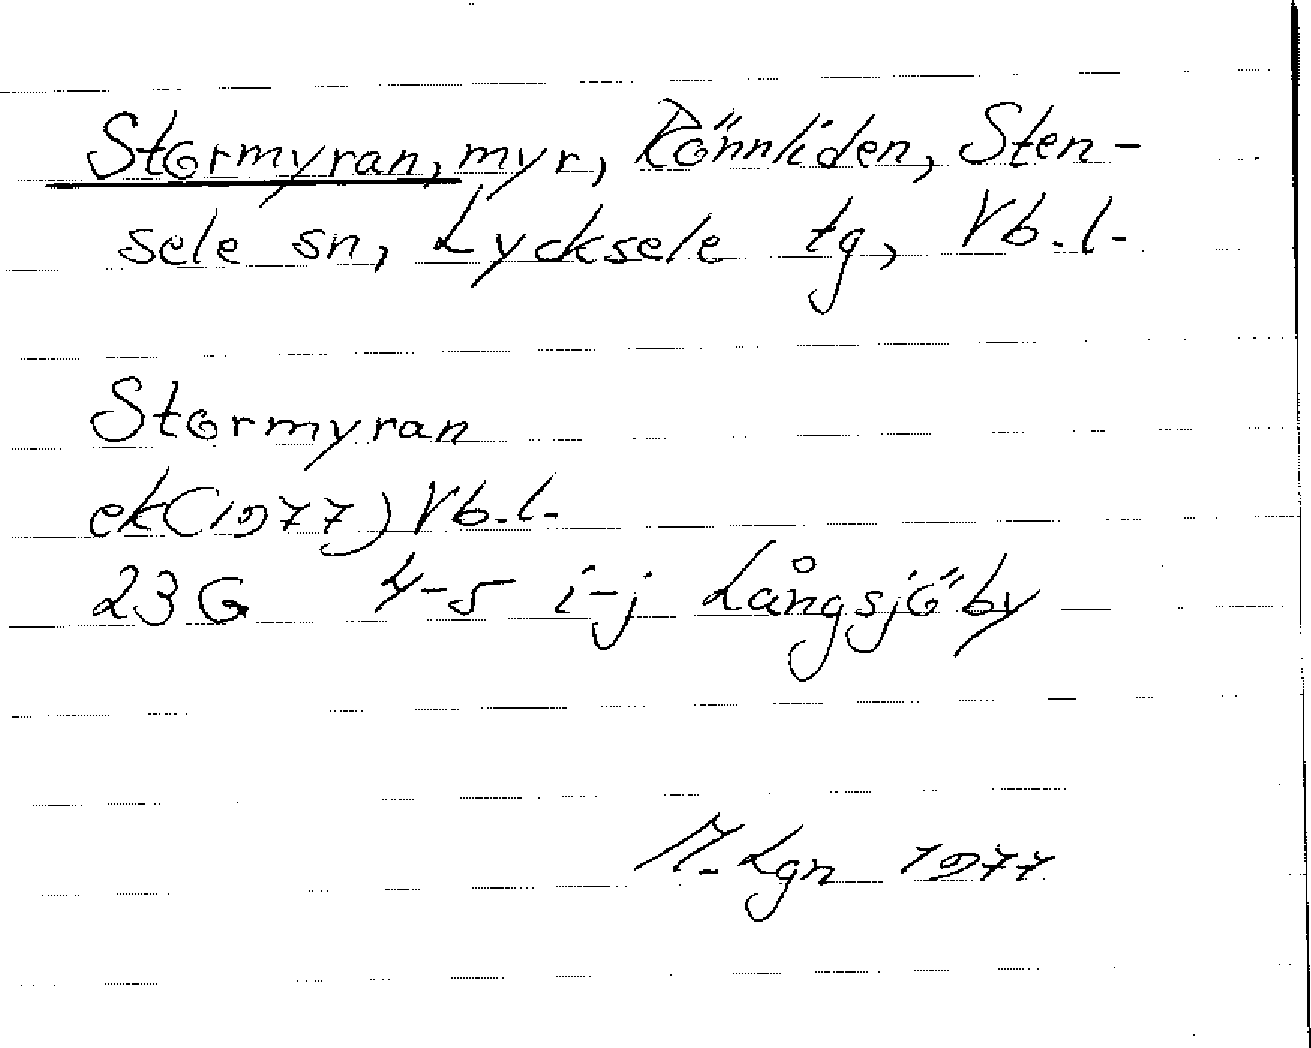 Stormyran, myr, Rönnliden, Sten-
sele sn, Lycksele tg, Vb.l.
Stormyran
ek(1977) Vb.l.
23G 4-5 i-j Långsjöby
M. Lgn 1977